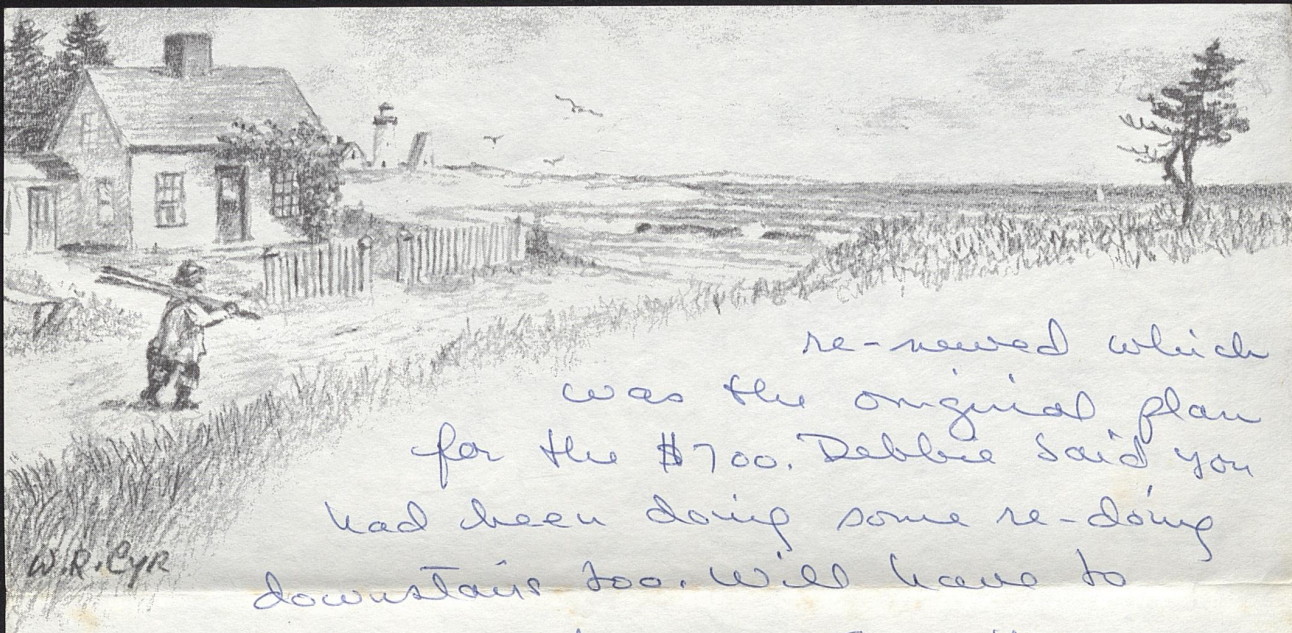 re-newed which
was the original plan
for the $700. Debbie said you
had been doing some re-doing
downstairs too. Will have to
W.R. Cyr